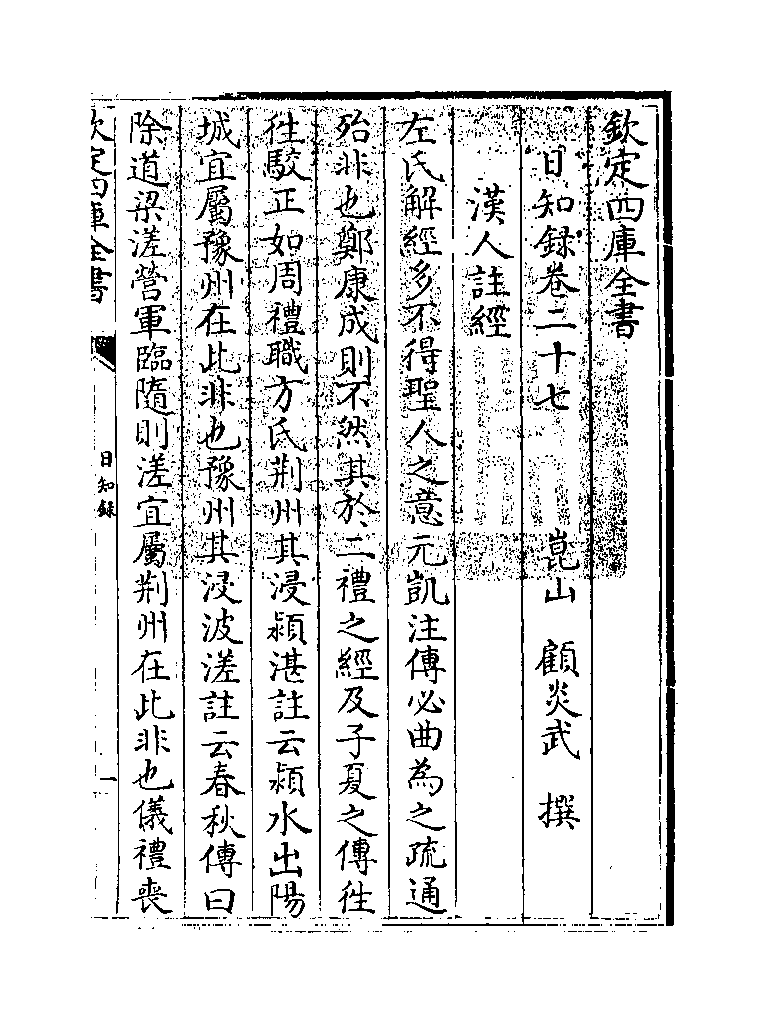 欽定四庫全書
日知録卷二十七
崑山 顧炎武 撰
漢人註經
左氏解經多不得聖人之意元凱注傳必曲為之疏通
殆非也鄭康成則不然其於二禮之經及子夏之傳徃
徃駁正如周禮職方氏荆州其浸潁湛註云潁水出陽
城宜屬豫州在此非也豫州其浸波溠註云春秋傳曰
除道梁溠營軍臨隨則溠宜屬荆州在此非也儀禮喪
欽定四庫全書
日知録
一